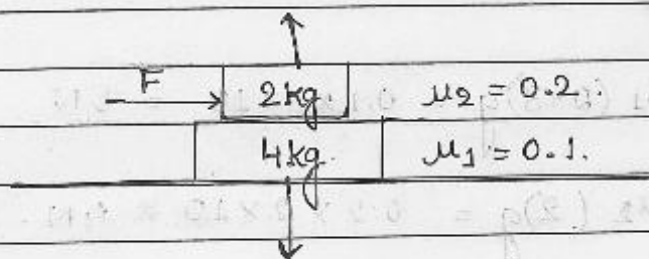 F
2kg μ2 = 0.2.
4kg μ1 = 0.1.